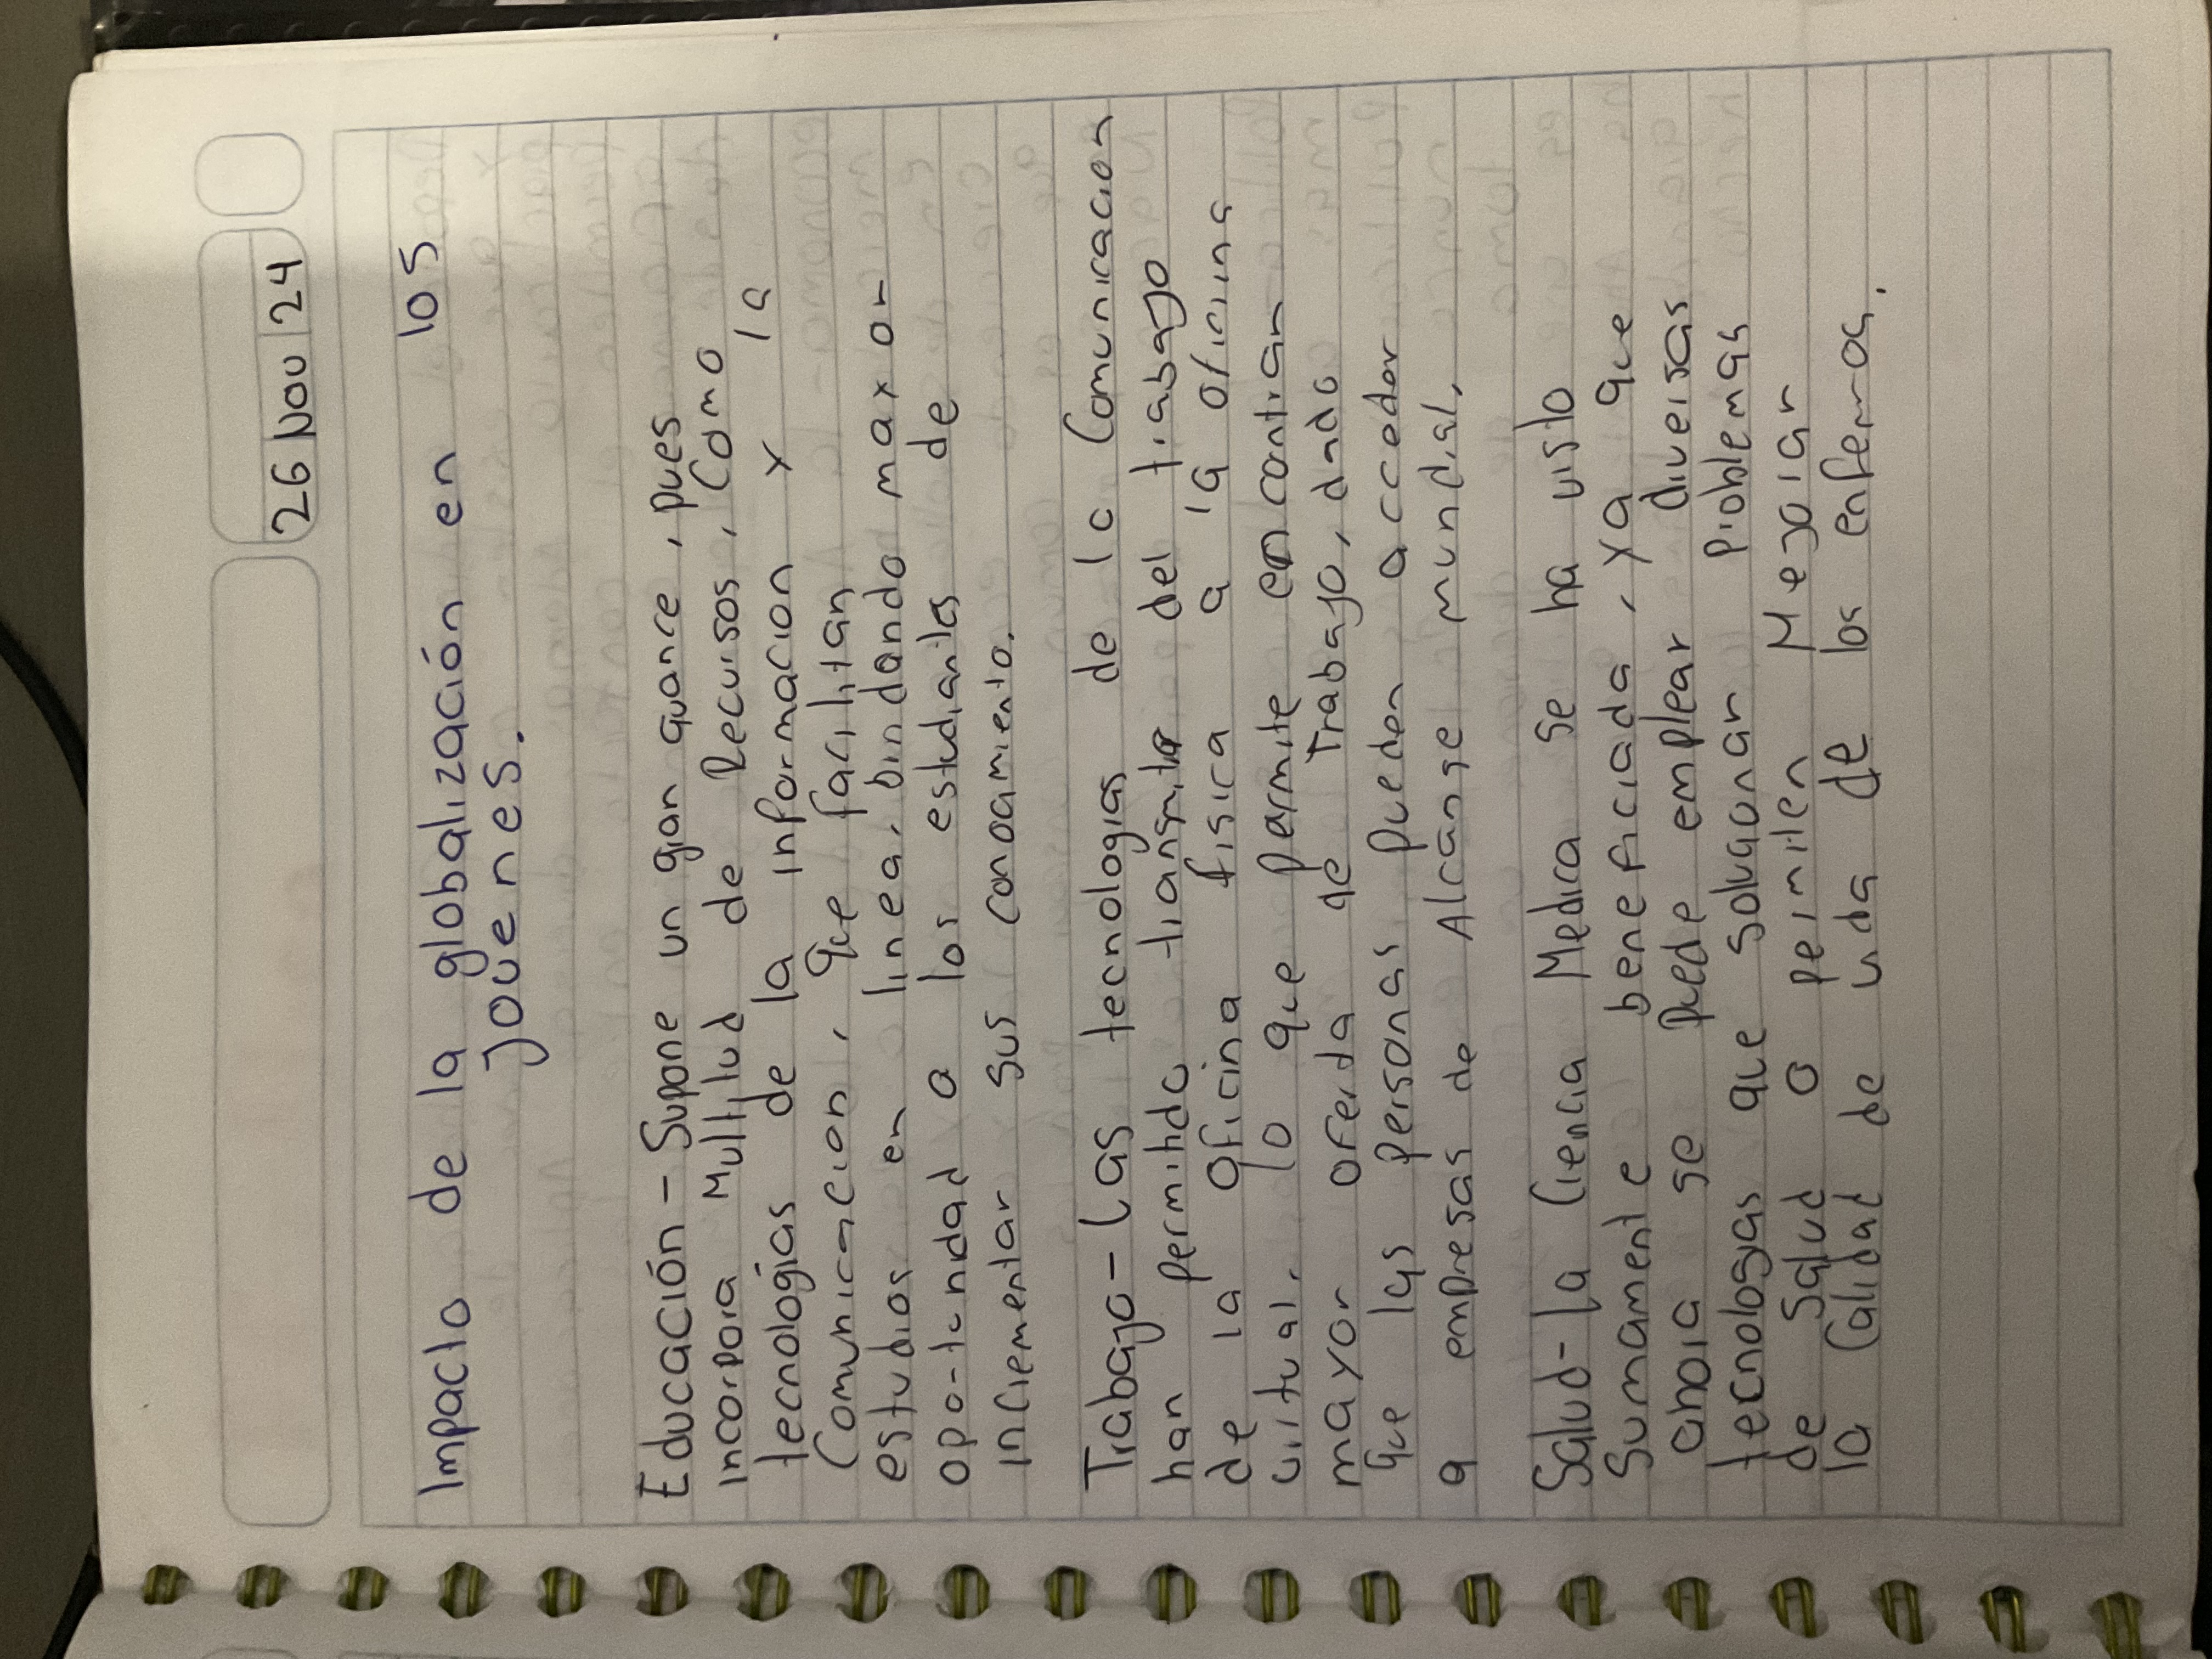 26 Nov 24
Impacto de la globalización en los
jovenes.
Educación - Supone un gran avance, pues
incorpora Multitud de Recursos, Como
tecnologías de la informacion y la
Comunicacion, que facilitan
estudios en linea, brindando mayor
oportunidad a los estudiantes de
incrementar sus conocimiento.
Trabajo - Las tecnologias de la Comunicacion
han permitido transmitir del trabajo
de la oficina fisica a la oficina
virtual, lo que permite encontrar
mayor oferda de Trabajo, dado
que las personas pueden acceder
a empresas de Alcange mundial.
Salud - la Ciencia Medica se ha visto
Sumamente beneficiada, ya que
ahora se puede emplear diversas
tecnologyas que solucionar problemas
de Salud o permiten Mejorar
la Calidad de vida de los enfermos.